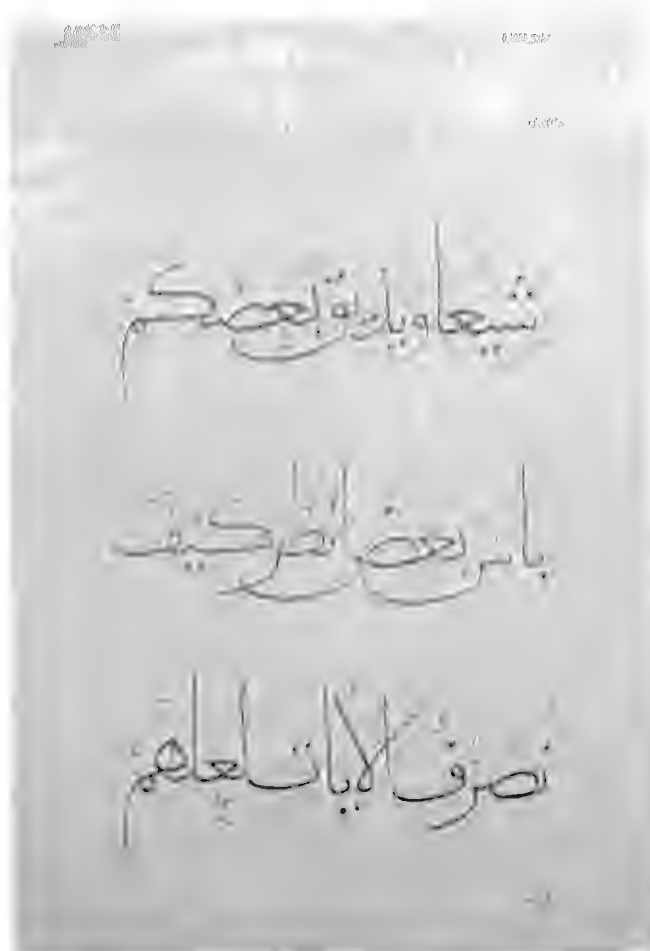 شيعا ويذيق بعضكم
باس بعض انظر كيف
نصرف الايات لعلهم